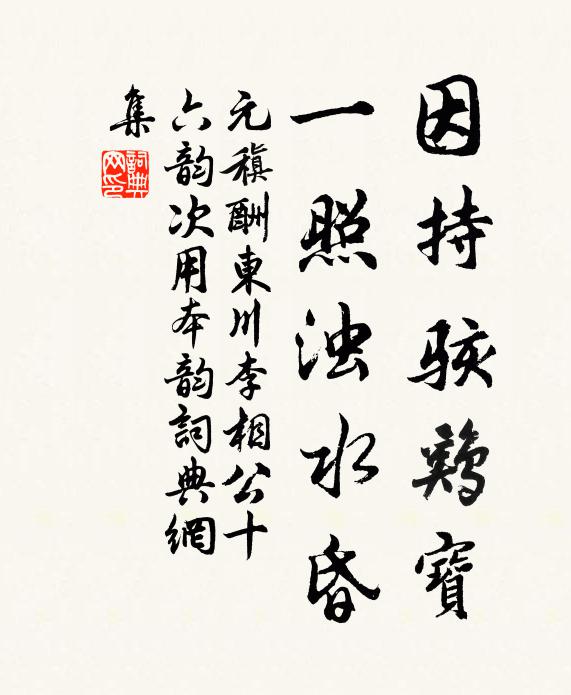 因持骇鷄寶
一照浊水昏
元稹酬東川李相公十
六韵次用本韵詞典網
集
詞典
网印